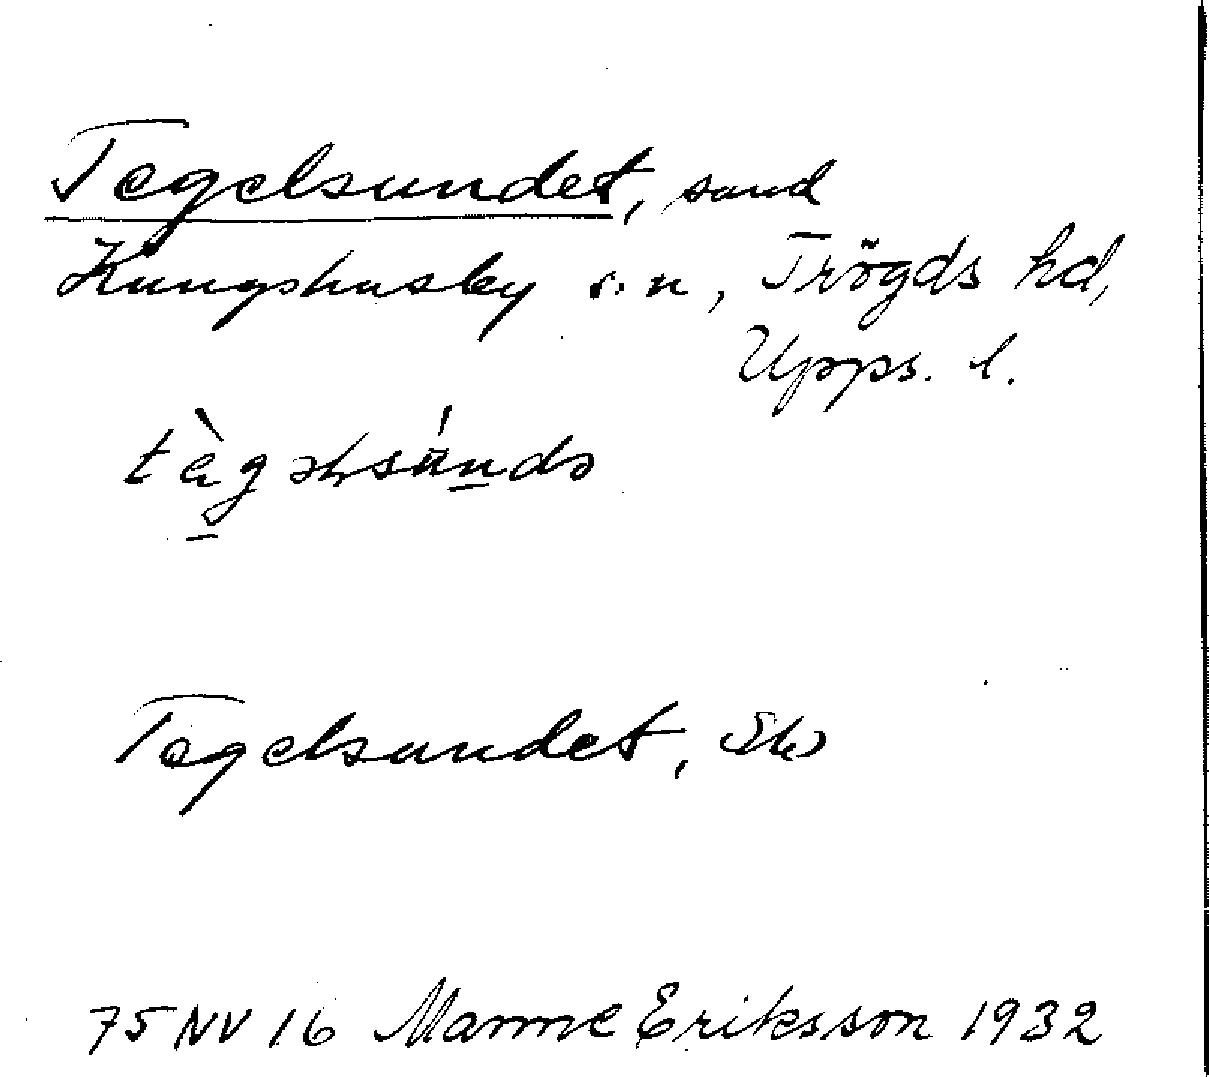 Tegelsundet, sund
Kungshusby s:n, Trögds hd,
Upps. l.
Tegelsundet, Sk
75 NV 16 Manne Eriksson 1932